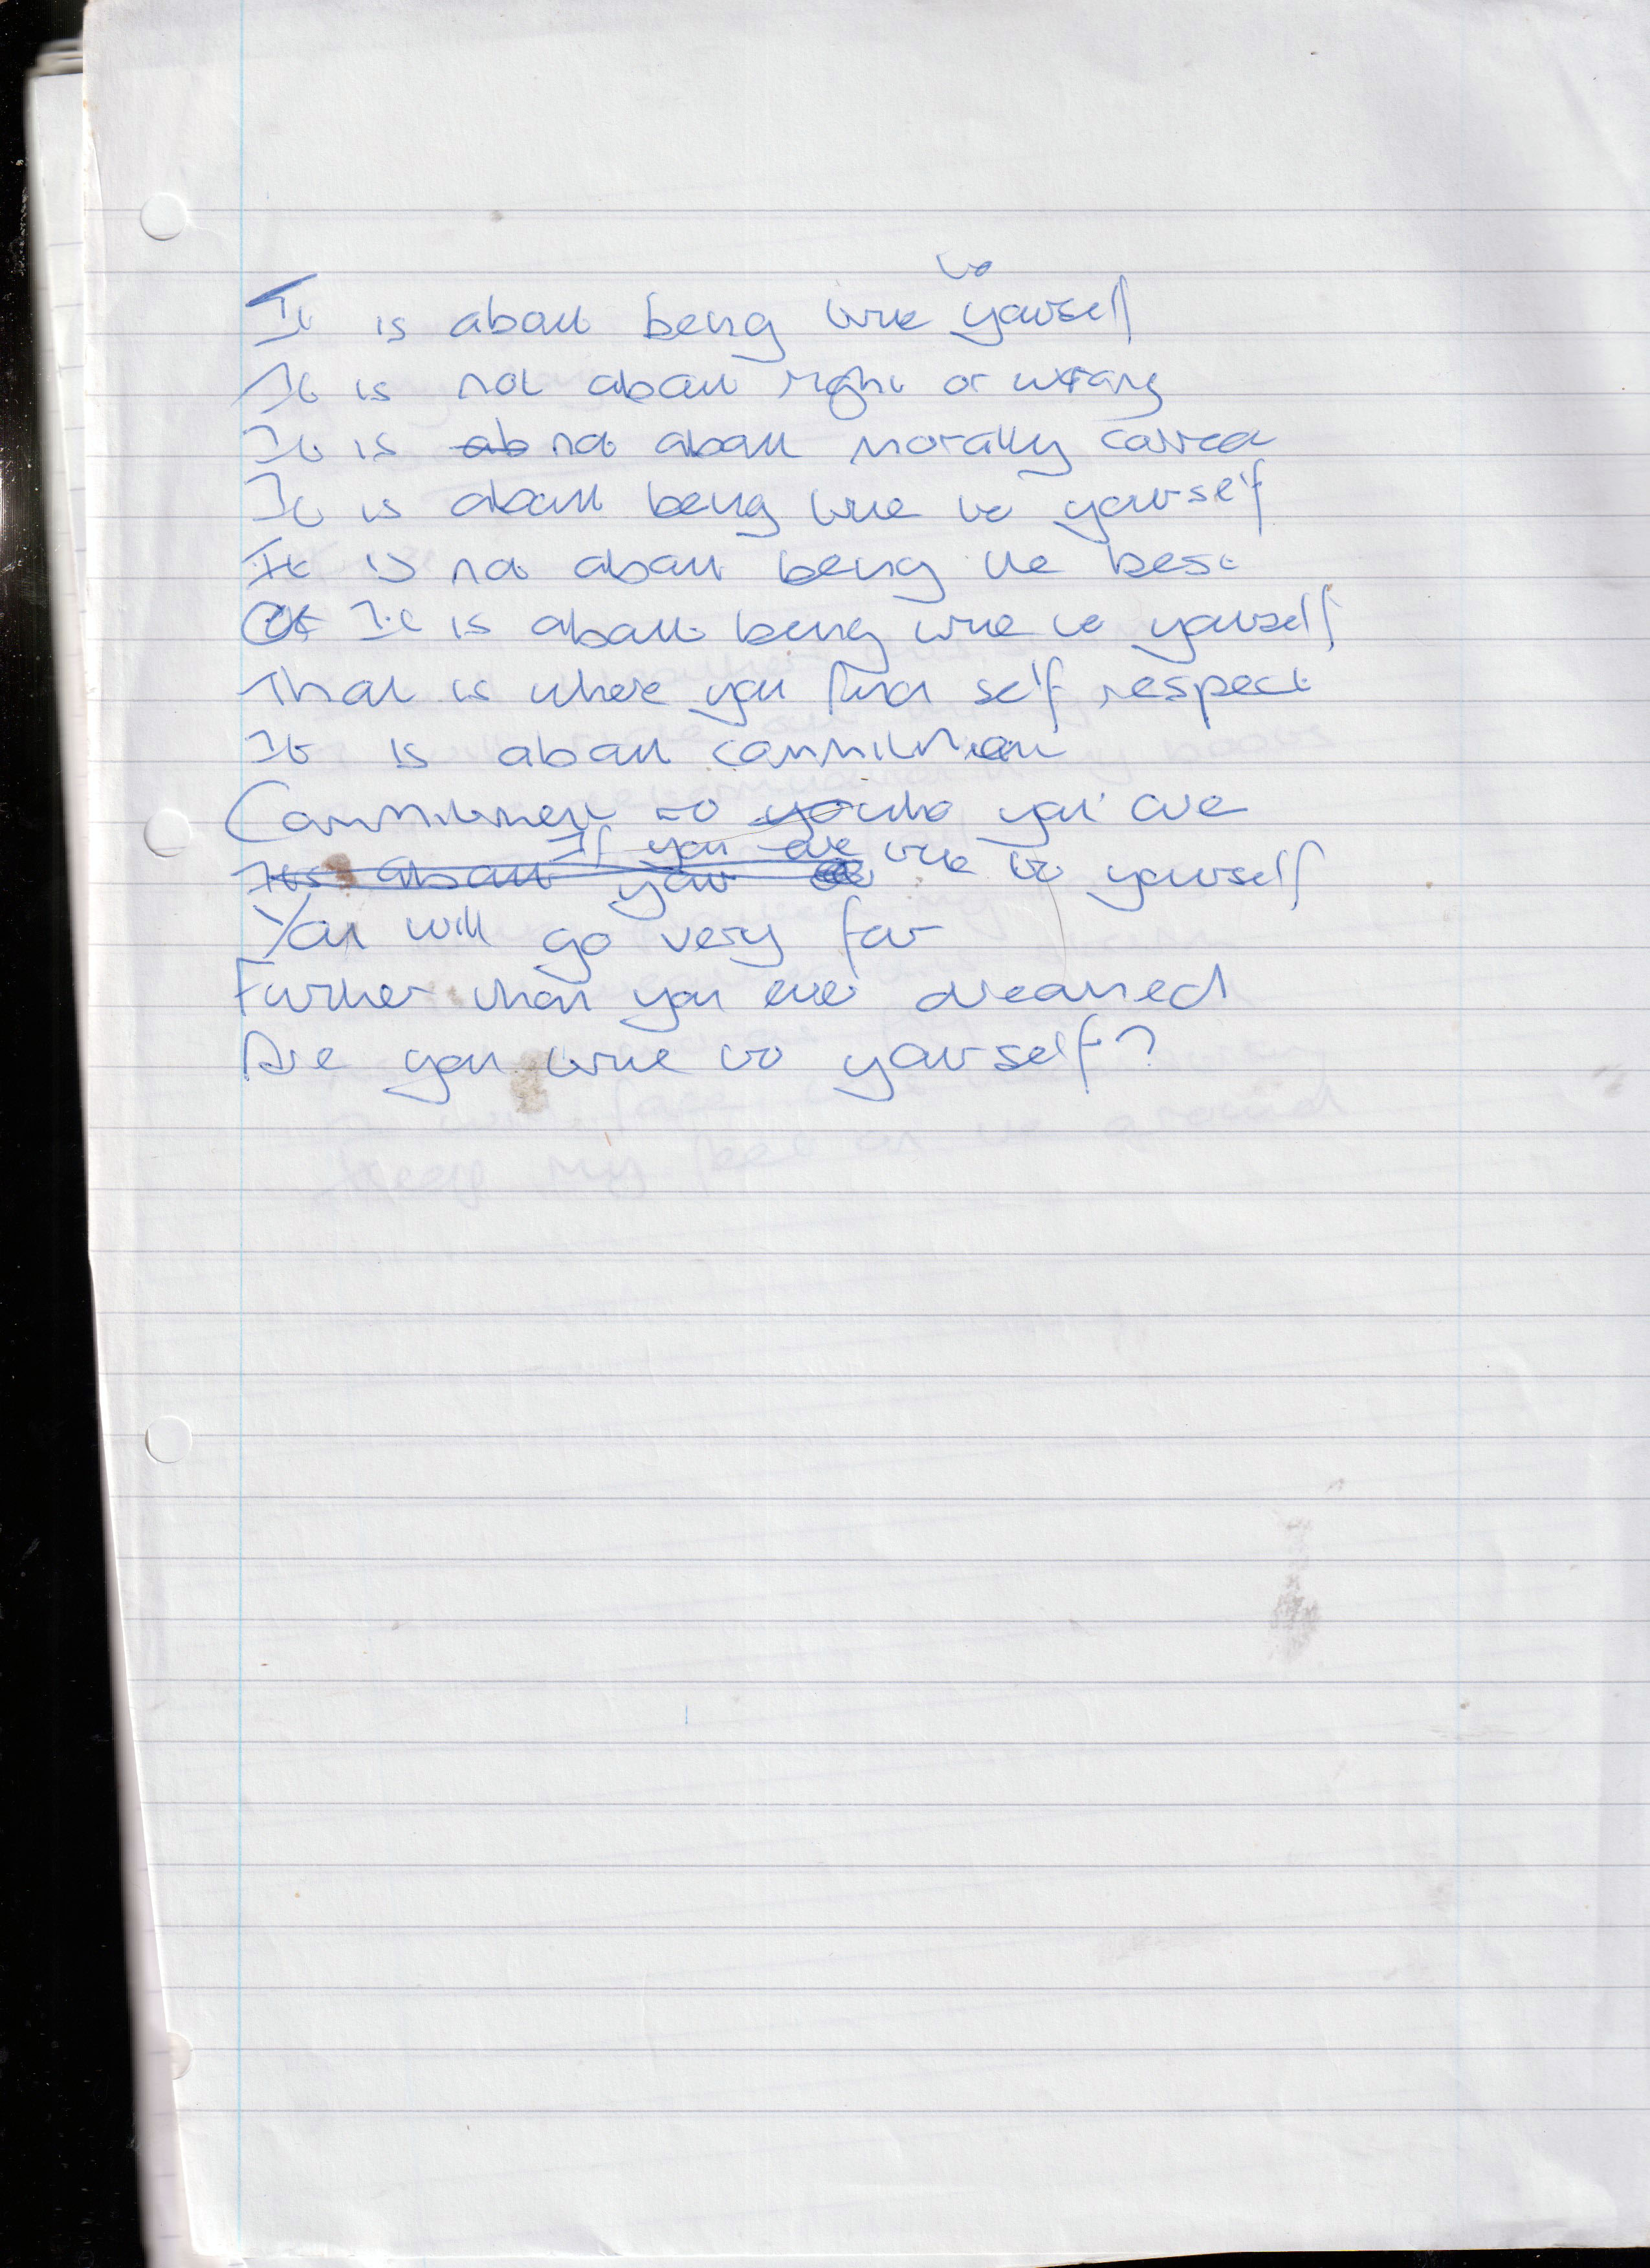 It is about being true to yourself
It is not about right or wrong
It is ab not about morally correct
It is about being true to yourself
It is not about being the best
It is about being true to yourself
That is where you find self respect
It is about commitment
Commitment to who you are
If you are true to yourself
Its about your
You will go very far
Further than you ever dreamed
Are you true to yourself?